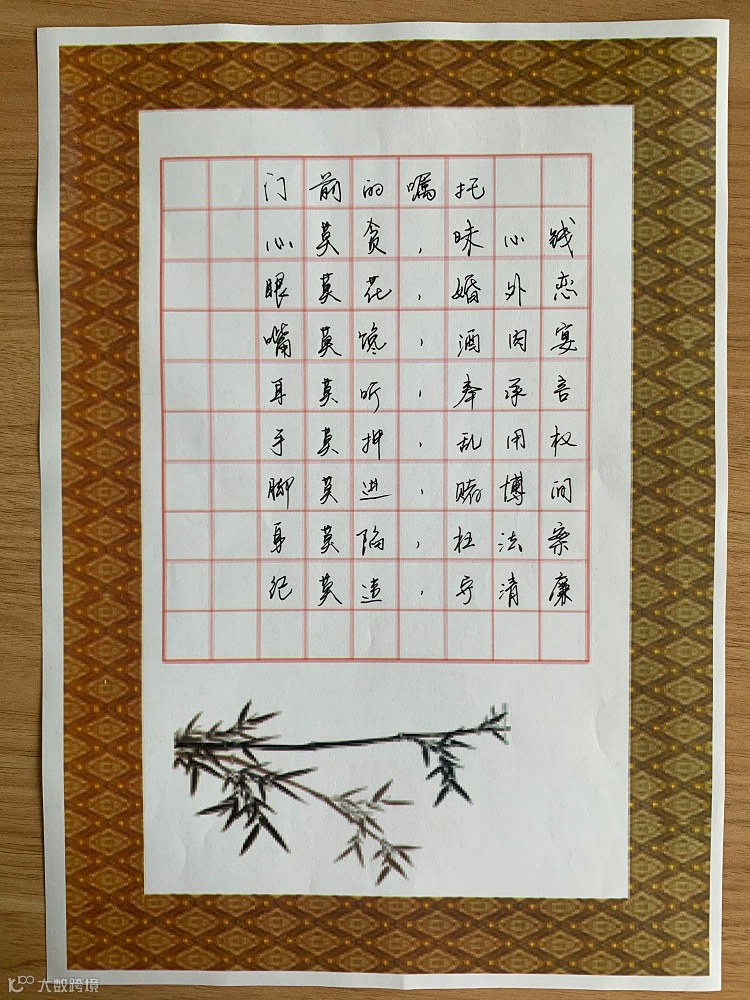 门前的嘱托
心莫贪，昧心钱
眼莫花，婚外恋
嘴莫馋，酒肉宴
耳莫听，奉承言
手莫押，乱用权
脚莫进，赌博间
身莫陷，枉法案
纪莫违，守清廉
大数跨境